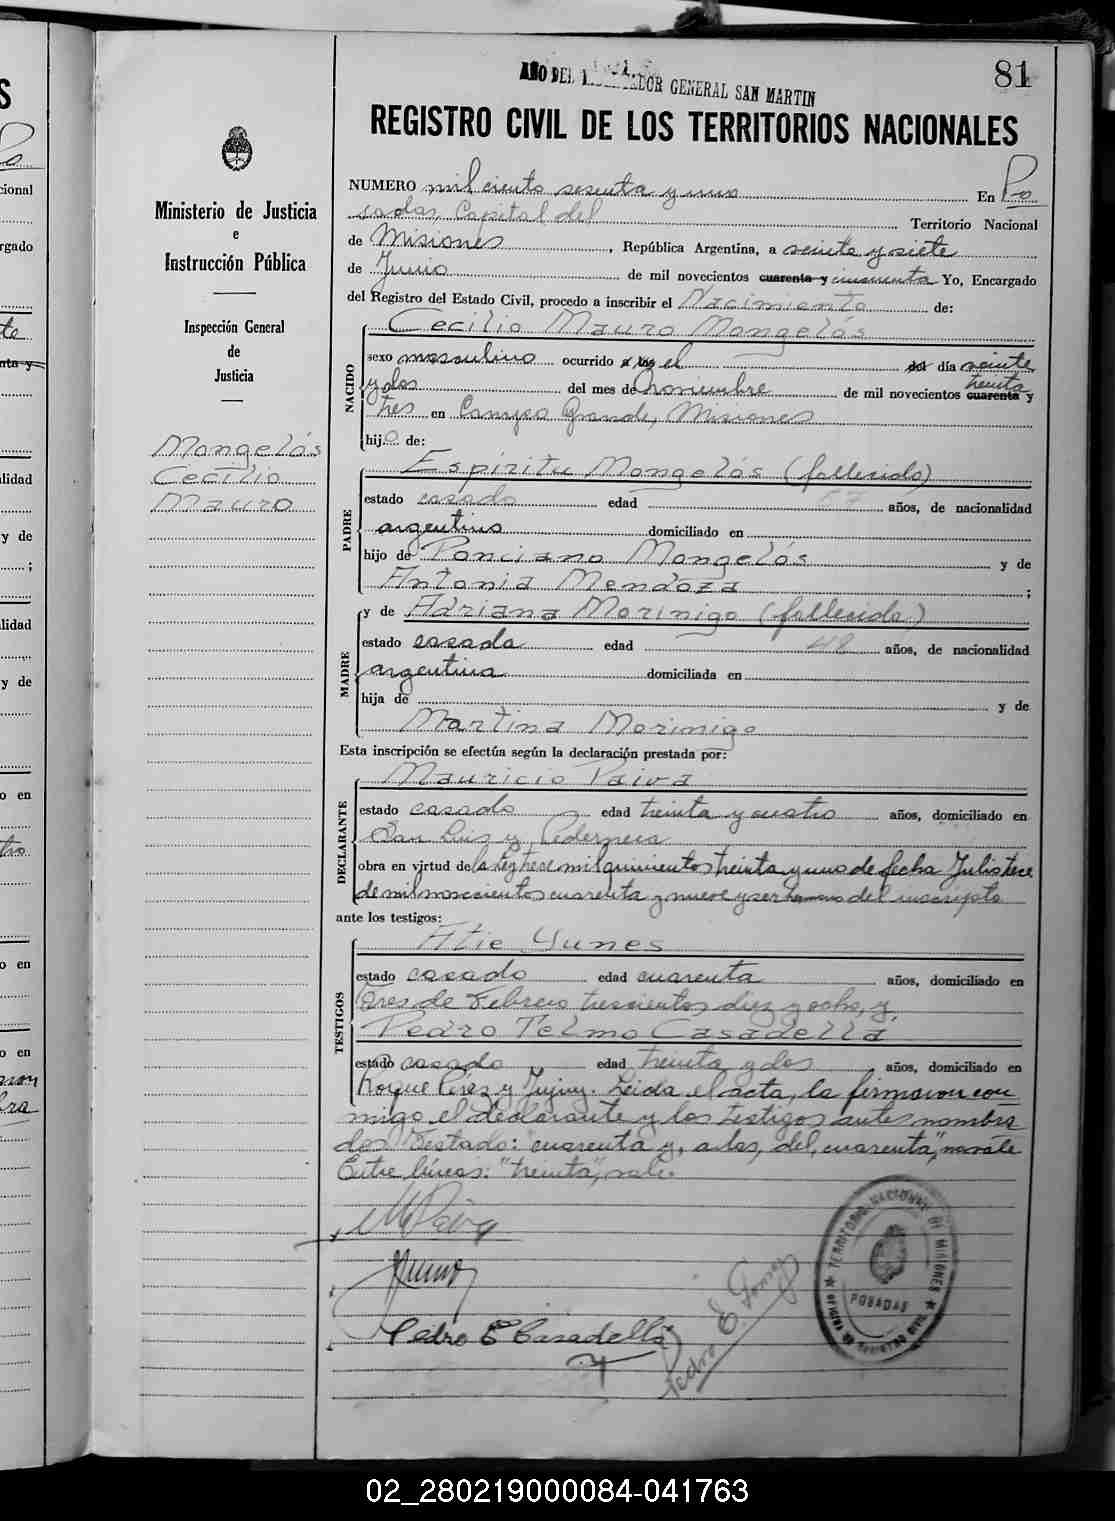 81
AÑO DEL LIBERTADOR GENERAL SAN MARTIN
REGISTRO CIVIL DE LOS TERRITORIOS NACIONALES
Ministerio de Justicia
e
Instrucción Pública
Inspección General
de
Justicia
Mongelós
Cecilio
Mauro
NUMERO mil ciento sesenta y uno En Po
sadas, Capital del Territorio Nacional
de Misiones, República Argentina, a veinte y siete
de Junio de mil novecientos cuarenta y cincuenta Yo, Encargado
del Registro del Estado Civil, procedo a inscribir el Nacimiento de:
NACIDO
Cecilio Mauro Mongelós
sexo masculino ocurrido a las el del día veinte
y dos del mes de Noviembre de mil novecientos cuarenta y treinta
tres en Campo Grande, Misiones
hijo de:
PADRE
Espíritu Mongelós (fallecido)
estado casado edad 57 años, de nacionalidad
argentino domiciliado en
hijo de Ponciano Mongelós y de
Antonia Mendoza;
MADRE
y de Adriana Morinigo (fallecida)
estado casada edad 48 años, de nacionalidad
argentina domiciliada en
hija de y de
Martina Morinigo
Esta inscripción se efectúa según la declaración prestada por:
DECLARANTE
Mauricio Paiva
estado casado edad treinta y cuatro años, domiciliado en
San Luis y Pedernera
obra en virtud de la Ley trece mil quinientos treinta y uno de fecha Julio trece
de mil novecientos cuarenta y nueve y ser hermano del inscripto
ante los testigos:
TESTIGOS
Atie Yunes
estado casado edad cuarenta años, domiciliado en
Tres de Febrero trescientos diez y ocho, y,
Pedro Telmo Casadella
estado casado edad treinta y dos años, domiciliado en
Roque Pérez y Jujuy. Leida el acta, la firmaron con
migo el declarante y los testigos antes nombra
dos. Testado: "cuarenta y, a las, del, cuarenta", no vale
Entre líneas: "treinta", vale.
MPaiva
Pedro E Casadella
Pedro E. Gomez
TERRITORIO NACIONAL DE MISIONES
POSADAS
OFICINA DE REGISTRO CIVIL
02_280219000084-041763